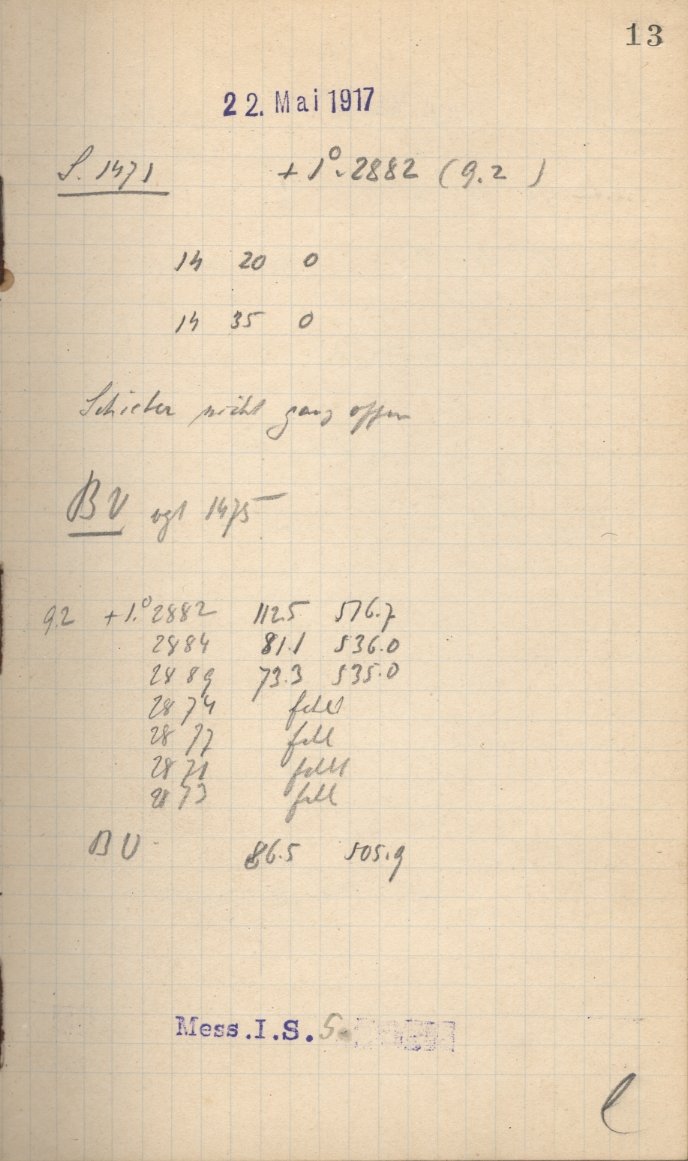 13
22. Mai 1917
S. 1471 +1°.2882 (9.2)
14 20 0
14 35 0
Schieber nicht ganz offen
BV vgl 1475
9.2 +1.°2882 112.5 576.7
2884 81.1 536.0
2889 73.3 535.0
2874 fehlt
2877 fehlt
2871 fehlt
2873 fehlt
BV 86.5 505.9
Mess.I.S. 5